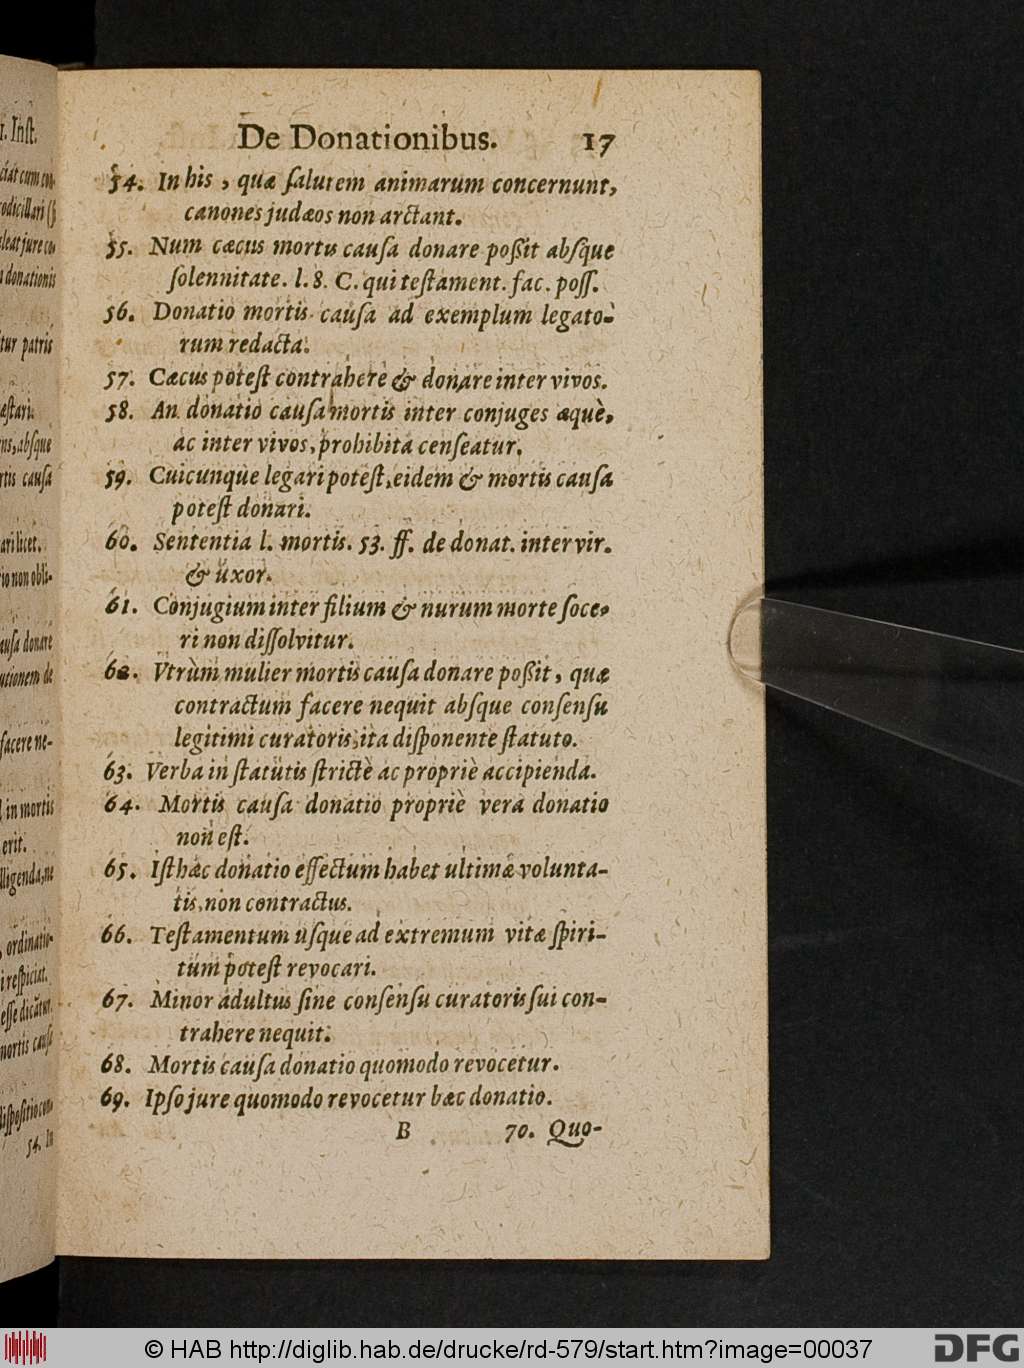 De Donationibus. 17
54. In his, quæ ſalutem animarum concernunt,
canones judæos non arctant.
55. Num cæcus mortis cauſa donare poßit abſque
ſolennitate. l. 8. C. qui teſtament. fac. poſſ.
56. Donatio mortis cauſa ad exemplum legato-
rum redacta.
57. Cæcus poteſt contrahere & donare inter vivos.
58. An donatio cauſa mortis inter conjuges æquè,
ac inter vivos, prohibita cenſeatur.
59. Cuicunque legari poteſt, eidem & mortis cauſa
poteſt donari.
60. Sententia l. mortis. 53. ff. de donat. inter vir.
& uxor.
61. Conjugium inter filium & nurum morte ſoce-
ri non diſſolvitur.
62. Vtrùm mulier mortis cauſa donare poßit, quæ
contractum facere nequit abſque conſenſu
legitimi curatoris, ita diſponente ſtatuto.
63. Verba in ſtatutis ſtrictè ac propriè accipienda.
64. Mortis cauſa donatio propriè vera donatio
non eſt.
65. Iſthæc donatio effectum habet ultimæ volunta-
tis, non contractus.
66. Teſtamentum uſque ad extremum vitæ ſpiri-
tum poteſt revocari.
67. Minor adultus ſine conſenſu curatoris ſui con-
trahere nequit.
68. Mortis cauſa donatio quomodo revocetur.
69. Ipſo jure quomodo revocetur hæc donatio.
B 70. Quo-
1. Inſt.
donationis
tur patris
ns, abſque
rtis cauſa
ari licet.
io non obli-
auſa donare
facere ne-
in mortis
erit.
ordinatio-
i reſpiciat.
eſſe dicatur.
mortis cauſa
54. In
© HAB http://diglib.hab.de/drucke/rd-579/start.htm?image=00037
DFG